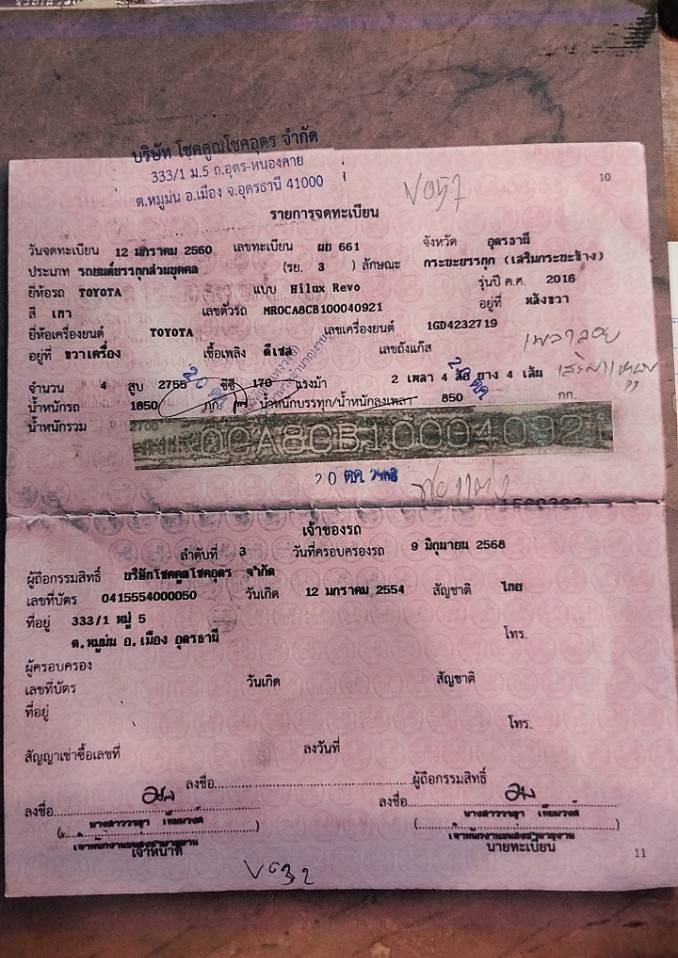 บริษัท โชคคูณโชคอุดร จำกัด
333/1 ม.5 ถ.อุดร-หนองคาย
ต.หมูม่น อ.เมือง จ.อุดรธานี 41000
V057
10
รายการจดทะเบียน
วันจดทะเบียน 12 มกราคม 2560 เลขทะเบียน ผย 661 จังหวัด อุดรธานี
ประเภท รถยนต์บรรทุกส่วนบุคคล (รย. 3 ) ลักษณะ กระบะบรรทุก (เสริมกระบะข้าง)
ยี่ห้อรถ TOYOTA แบบ Hilux Revo รุ่นปี ค.ศ. 2016
สี เทา เลขตัวรถ MR0CA8CB100040921 อยู่ที่ หลังขวา
ยี่ห้อเครื่องยนต์ TOYOTA เลขเครื่องยนต์ 1GD4232719
อยู่ที่ ขวาเครื่อง เชื้อเพลิง ดีเซล เลขถังแก๊ส
เพลาลอย
จำนวน 4 สูบ 2755 ซีซี 170 แรงม้า 2 เพลา 4 ล้อ ยาง 4 เส้น
น้ำหนักรถ 1850 กก. น้ำหนักบรรทุก/น้ำหนักลงเพลา 850 กก.
น้ำหนักรวม 2700
MR0CA8CB100040921
20 ต.ค. 2568
เจ้าของรถ
ลำดับที่ 3 วันที่ครอบครองรถ 9 มิถุนายน 2568
ผู้ถือกรรมสิทธิ์ บริษัทโชคคูณโชคอุดร จำกัด
เลขที่บัตร 0415554000050 วันเกิด 12 มกราคม 2554 สัญชาติ ไทย
ที่อยู่ 333/1 หมู่ 5
ต.หมูม่น อ.เมือง อุดรธานี โทร.
ผู้ครอบครอง
เลขที่บัตร วันเกิด สัญชาติ
ที่อยู่
โทร.
สัญญาเช่าซื้อเลขที่ ลงวันที่
ลงชื่อ ผู้ถือกรรมสิทธิ์
ลงชื่อ ลงชื่อ
เจ้าหน้าที่ นายทะเบียน
11